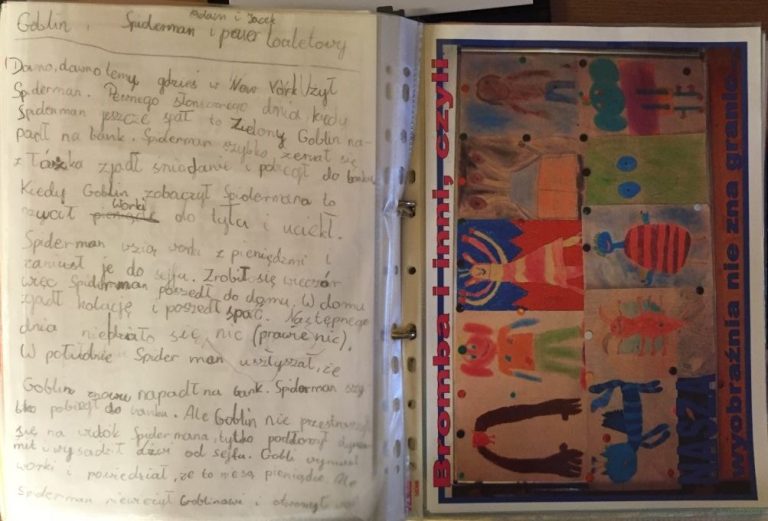 Adam i Jacek
Goblin, Spiderman i papier toaletowy
Dawno, dawno temu, gdzieś w New York żył
Spiderman. Pewnego słonecznego dnia, kiedy
Spiderman jeszcze spał to Zielony Goblin na-
padł na bank. Spiderman szybko zerwał się
z łóżka zjadł śniadanie i pobiegł do banku.
Kiedy Goblin zobaczył Spidermana to
worki
do tyłu i uciekł.
Spiderman wziął worki z pieniędzmi i
zaniusł je do sejfu. Zrobił się wieczór
więc Spiderman poszedł do domu. W domu
zjadł kolację i poszedł spać. Następnego
dnia niedziało się nic (prawie nic).
W południe Spider man usłyszał, że
Goblin znowu napadł na bank. Spiderman szy
bko pobiegł do banku. Ale Goblin nie przestraszył
się na widok Spidermana, tylko podłożył
i wysadził drzwi od sejfu.
worki i powiedział, że to nie są pieniądze Ale
Spiderman niewieżył Goblinowi i otworzył
Bromba i inni, czyli
NASZA
wyobraźnia nie zna granic